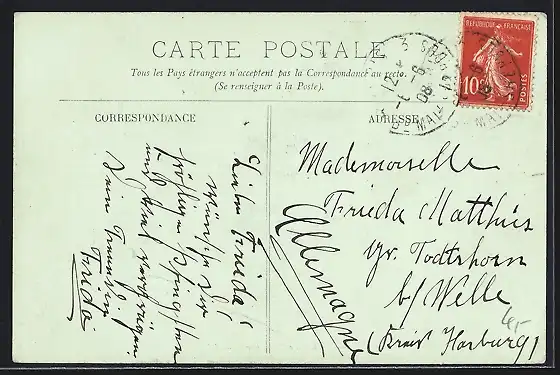 CARTE POSTALE
Tous les Pays étrangers n'acceptent pas la Correspondance au recto.
(Se renseigner à la Poste).
REPUBLIQUE FRANÇAISE
10c
POSTES
CORRESPONDANCE
ADRESSE
Liebe Frieda!
Wünsche Dir
fröhliches Pfingsten
und viel Vergnügen
Deine Freundin
Frida
Mademoiselle
Frieda Matthies
Gr. Todtshorn
b/ Welle
(Kreis Harburg)
Allemagne